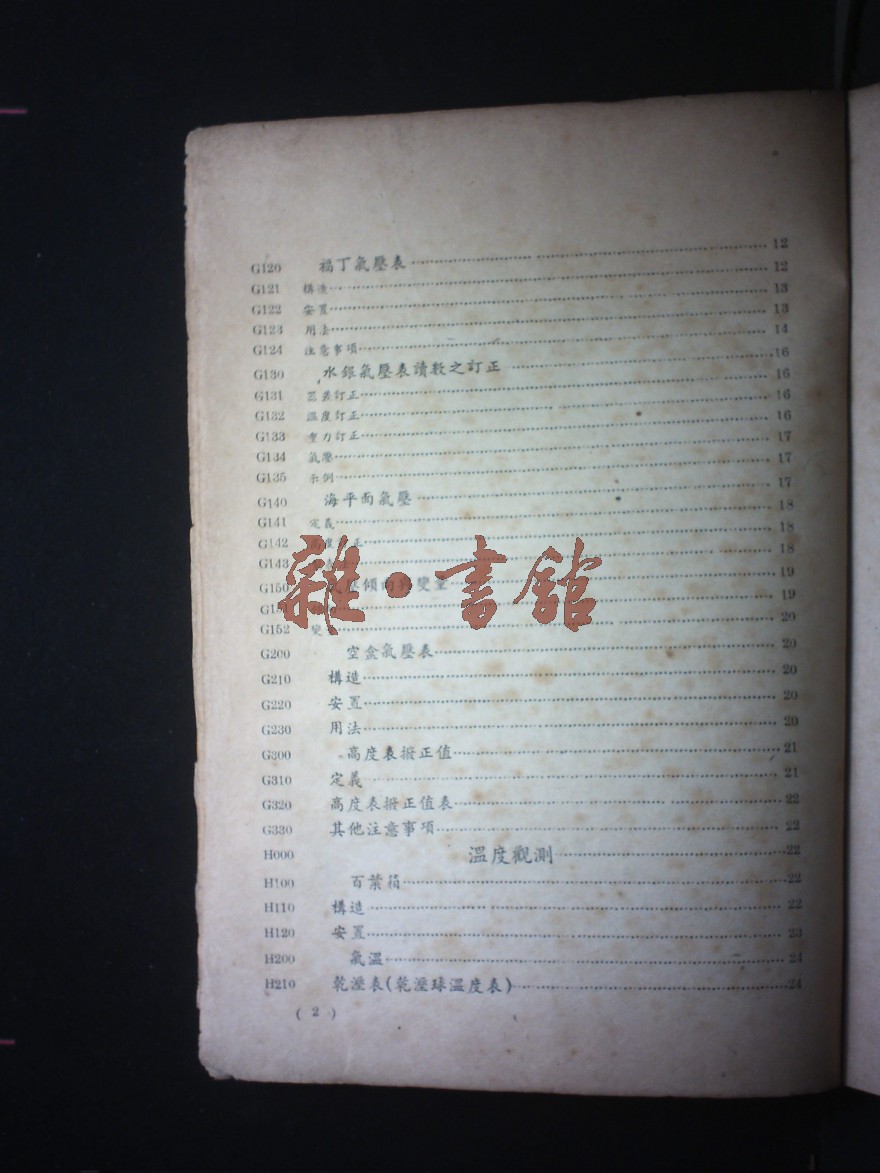 G120 福丁氣壓表 12
G121 構造 12
G122 安置 13
G123 用法 13
G124 注意事項 14
G130 水銀氣壓表讀數之訂正 16
G131 器差訂正 16
G132 溫度訂正 16
G133 重力訂正 16
G134 氣壓 17
G135 示例 17
G140 海平面氣壓 17
G141 定義 18
G142 高度訂正 18
G143 18
G150 氣壓傾向與變量 19
G151 19
G152 20
G200 空盒氣壓表 20
G210 構造 20
G220 安置 20
G230 用法 20
G300 高度表撥正值 21
G310 定義 21
G320 高度表撥正值表 22
G330 其他注意事項 22
H000 溫度觀測 22
H100 百葉箱 22
H110 構造 22
H120 安置 23
H200 氣溫 24
H210 乾溼表(乾溼球溫度表) 24
( 2 )
雜·書館